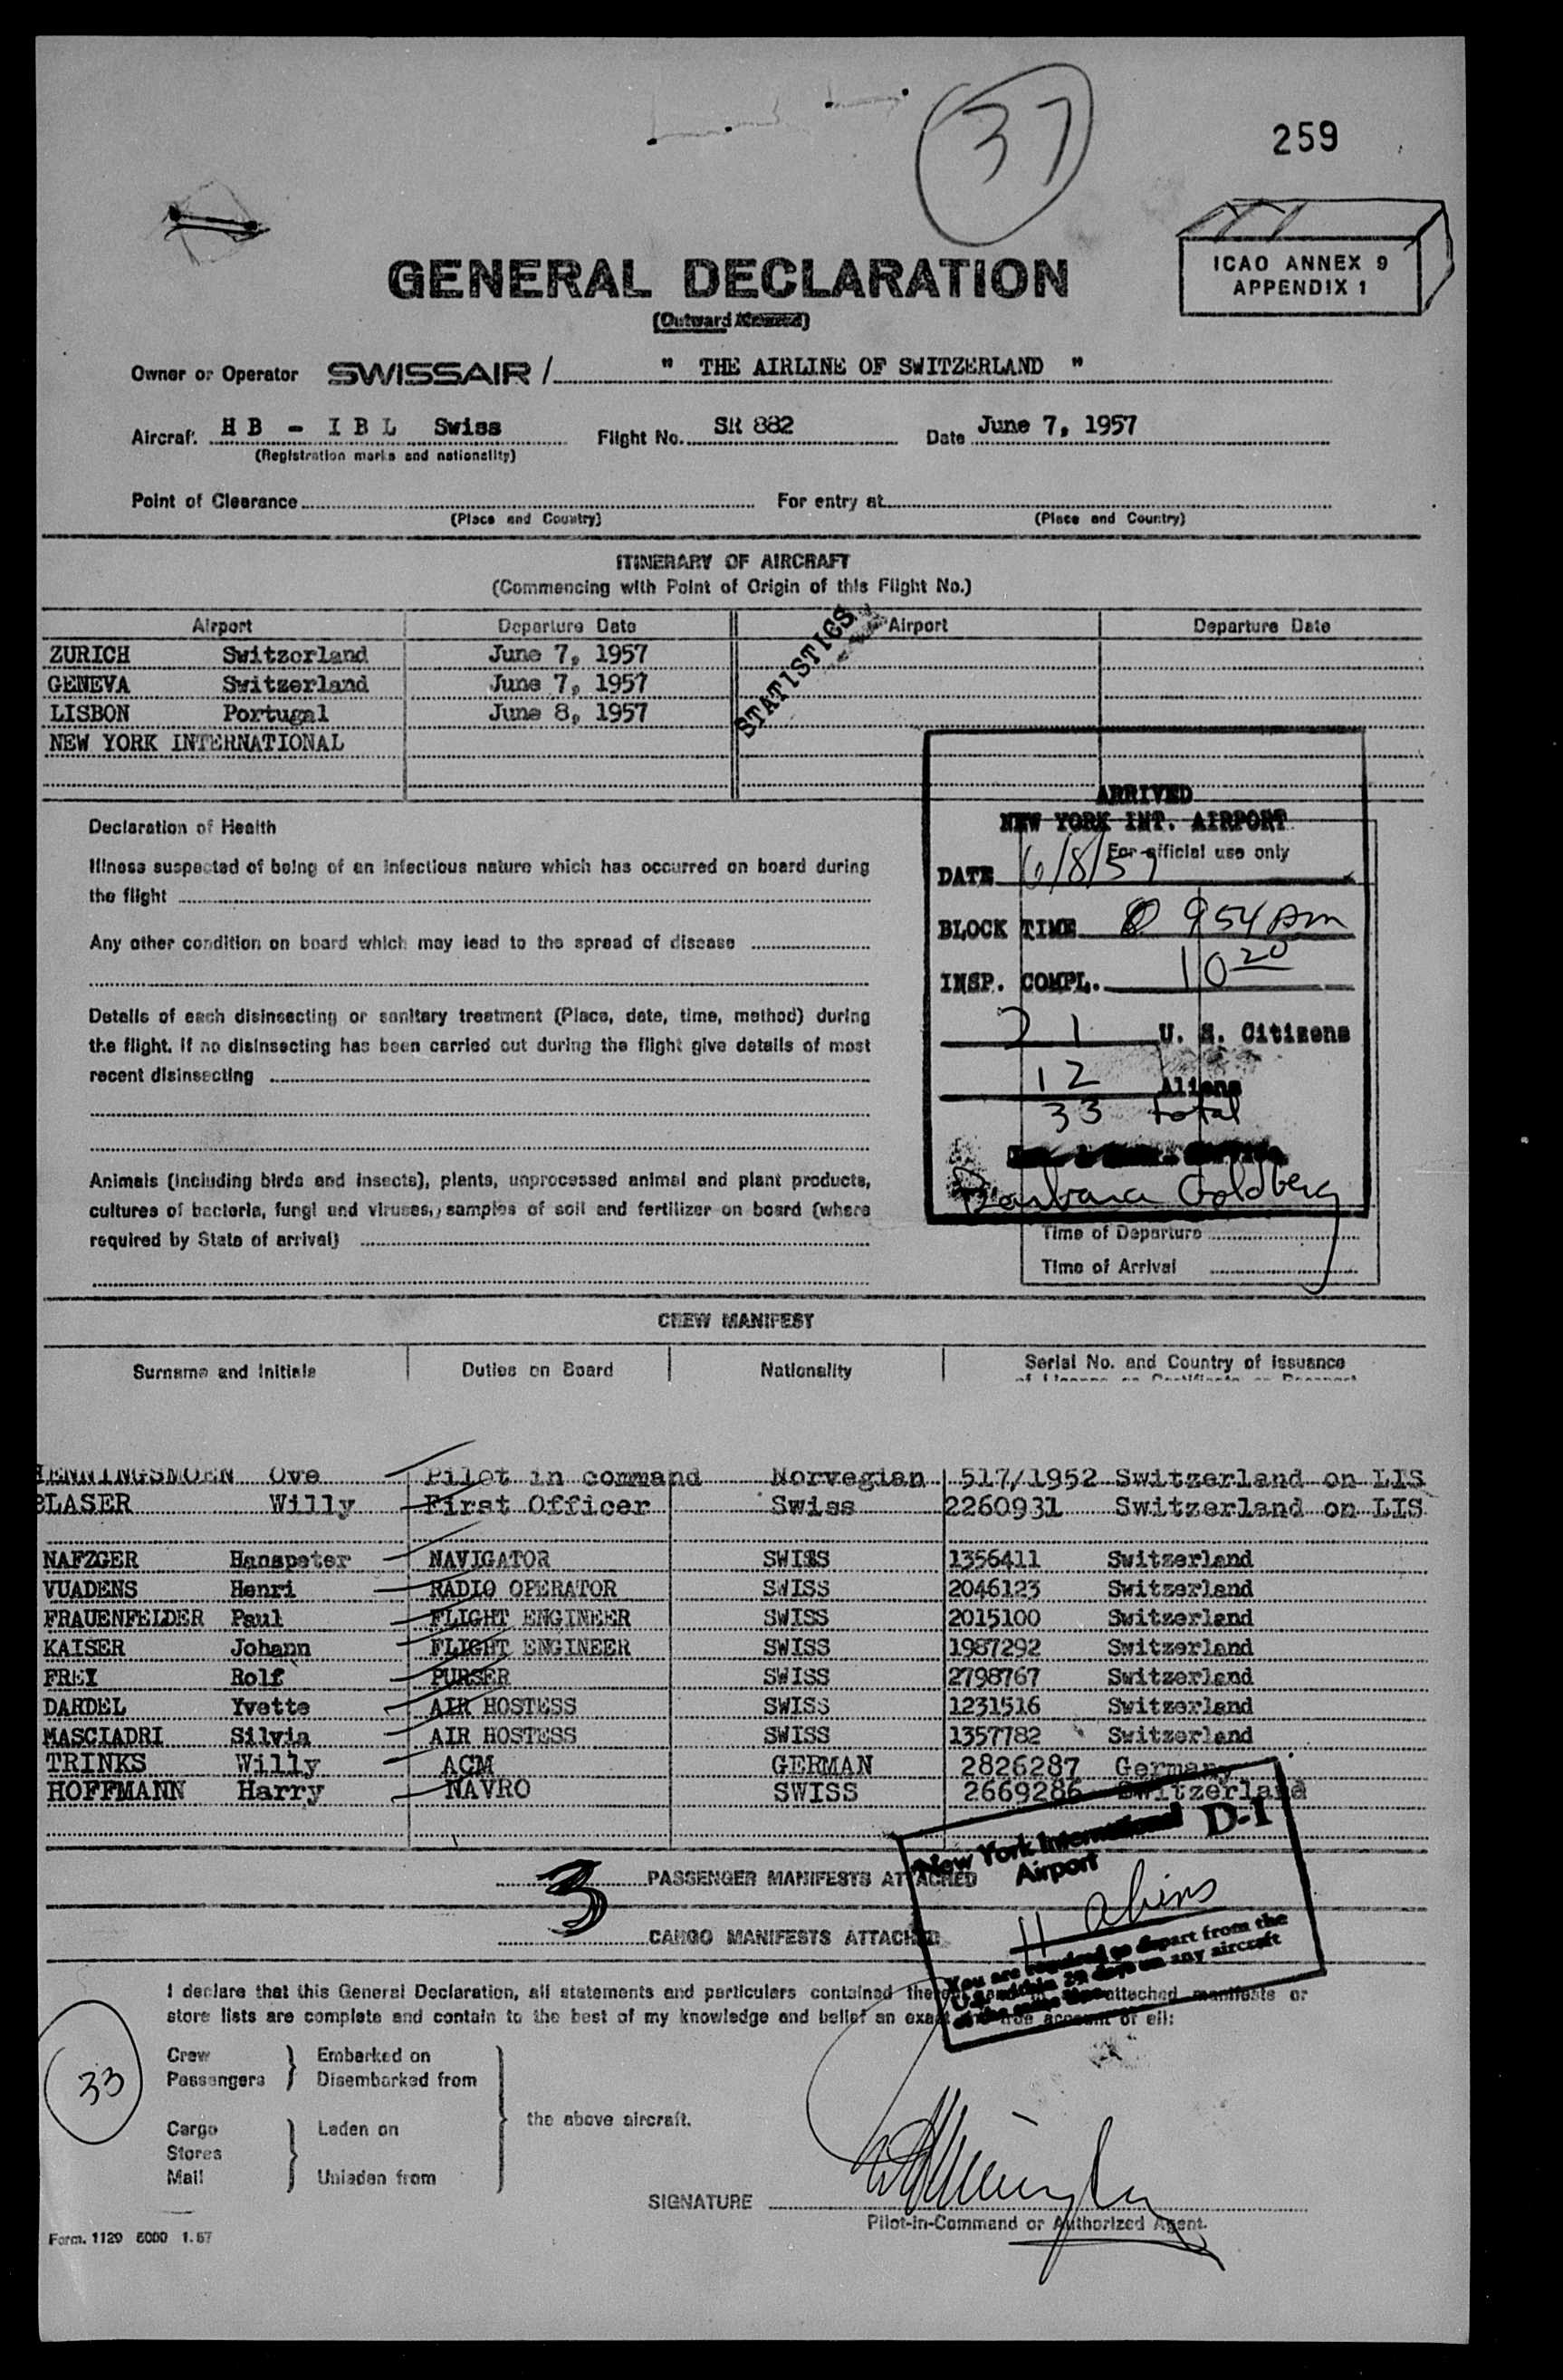 37
259
ICAO ANNEX 9
APPENDIX 1
GENERAL DECLARATION
(Outward/Inward)
Owner or Operator SWISSAIR / " THE AIRLINE OF SWITZERLAND "
Aircraft H B - I B L Swiss Flight No. SR 882 Date June 7, 1957
(Registration marks and nationality)
Point of Clearance For entry at
(Place and Country) (Place and Country)
ITINERARY OF AIRCRAFT
(Commencing with Point of Origin of this Flight No.)
Airport Departure Date Airport Departure Date
ZURICH Switzerland June 7, 1957
GENEVA Switzerland June 7, 1957
LISBON Portugal June 8, 1957
NEW YORK INTERNATIONAL
STATISTICS
ARRIVED
NEW YORK INT. AIRPORT
For official use only
DATE 6/8/57
BLOCK TIME 9 54 pm
INSP. COMPL. 10 20
21 U. S. Citizens
12 Aliens
33 total
Barbara Goldberg
Time of Departure
Time of Arrival
Declaration of Health
Illness suspected of being of an infectious nature which has occurred on board during
the flight
Any other condition on board which may lead to the spread of disease
Details of each disinsecting or sanitary treatment (Place, date, time, method) during
the flight. If no disinsecting has been carried out during the flight give details of most
recent disinsecting
Animals (including birds and insects), plants, unprocessed animal and plant products,
cultures of bacteria, fungi and viruses, samples of soil and fertilizer on board (where
required by State of arrival)
CREW MANIFEST
Surname and Initials Duties on Board Nationality Serial No. and Country of Issuance
of License or Certificate or Passport
HENNINGSMOEN Ove Pilot in command Norvegian 517/1952 Switzerland on LIS
BLASER Willy First Officer Swiss 2260931 Switzerland on LIS
NAFZGER Hanspeter NAVIGATOR SWISS 1356411 Switzerland
VUADENS Henri RADIO OPERATOR SWISS 2046123 Switzerland
FRAUENFELDER Paul FLIGHT ENGINEER SWISS 2015100 Switzerland
KAISER Johann FLIGHT ENGINEER SWISS 1987292 Switzerland
FREI Rolf PURSER SWISS 2798767 Switzerland
DARDEL Yvette AIR HOSTESS SWISS 1231516 Switzerland
MASCIADRI Silvia AIR HOSTESS SWISS 1357782 Switzerland
TRINKS Willy ACM GERMAN 2826287 Germany
HOFFMANN Harry NAVRO SWISS 2669286 Switzerland
3 PASSENGER MANIFESTS ATTACHED
CARGO MANIFESTS ATTACHED
New York International D-1
Airport
11 aliens
You are required to depart from the
U.S. within 29 days on any aircraft
of the same line
I declare that this General Declaration, all statements and particulars contained therein and in attached manifests or
store lists are complete and contain to the best of my knowledge and belief an exact and true account of all:
33
Crew Embarked on
Passengers Disembarked from
the above aircraft.
Cargo Laden on
Stores
Mail Unladen from
SIGNATURE
Pilot-in-Command or Authorized Agent.
Form. 1129 5000 1.57